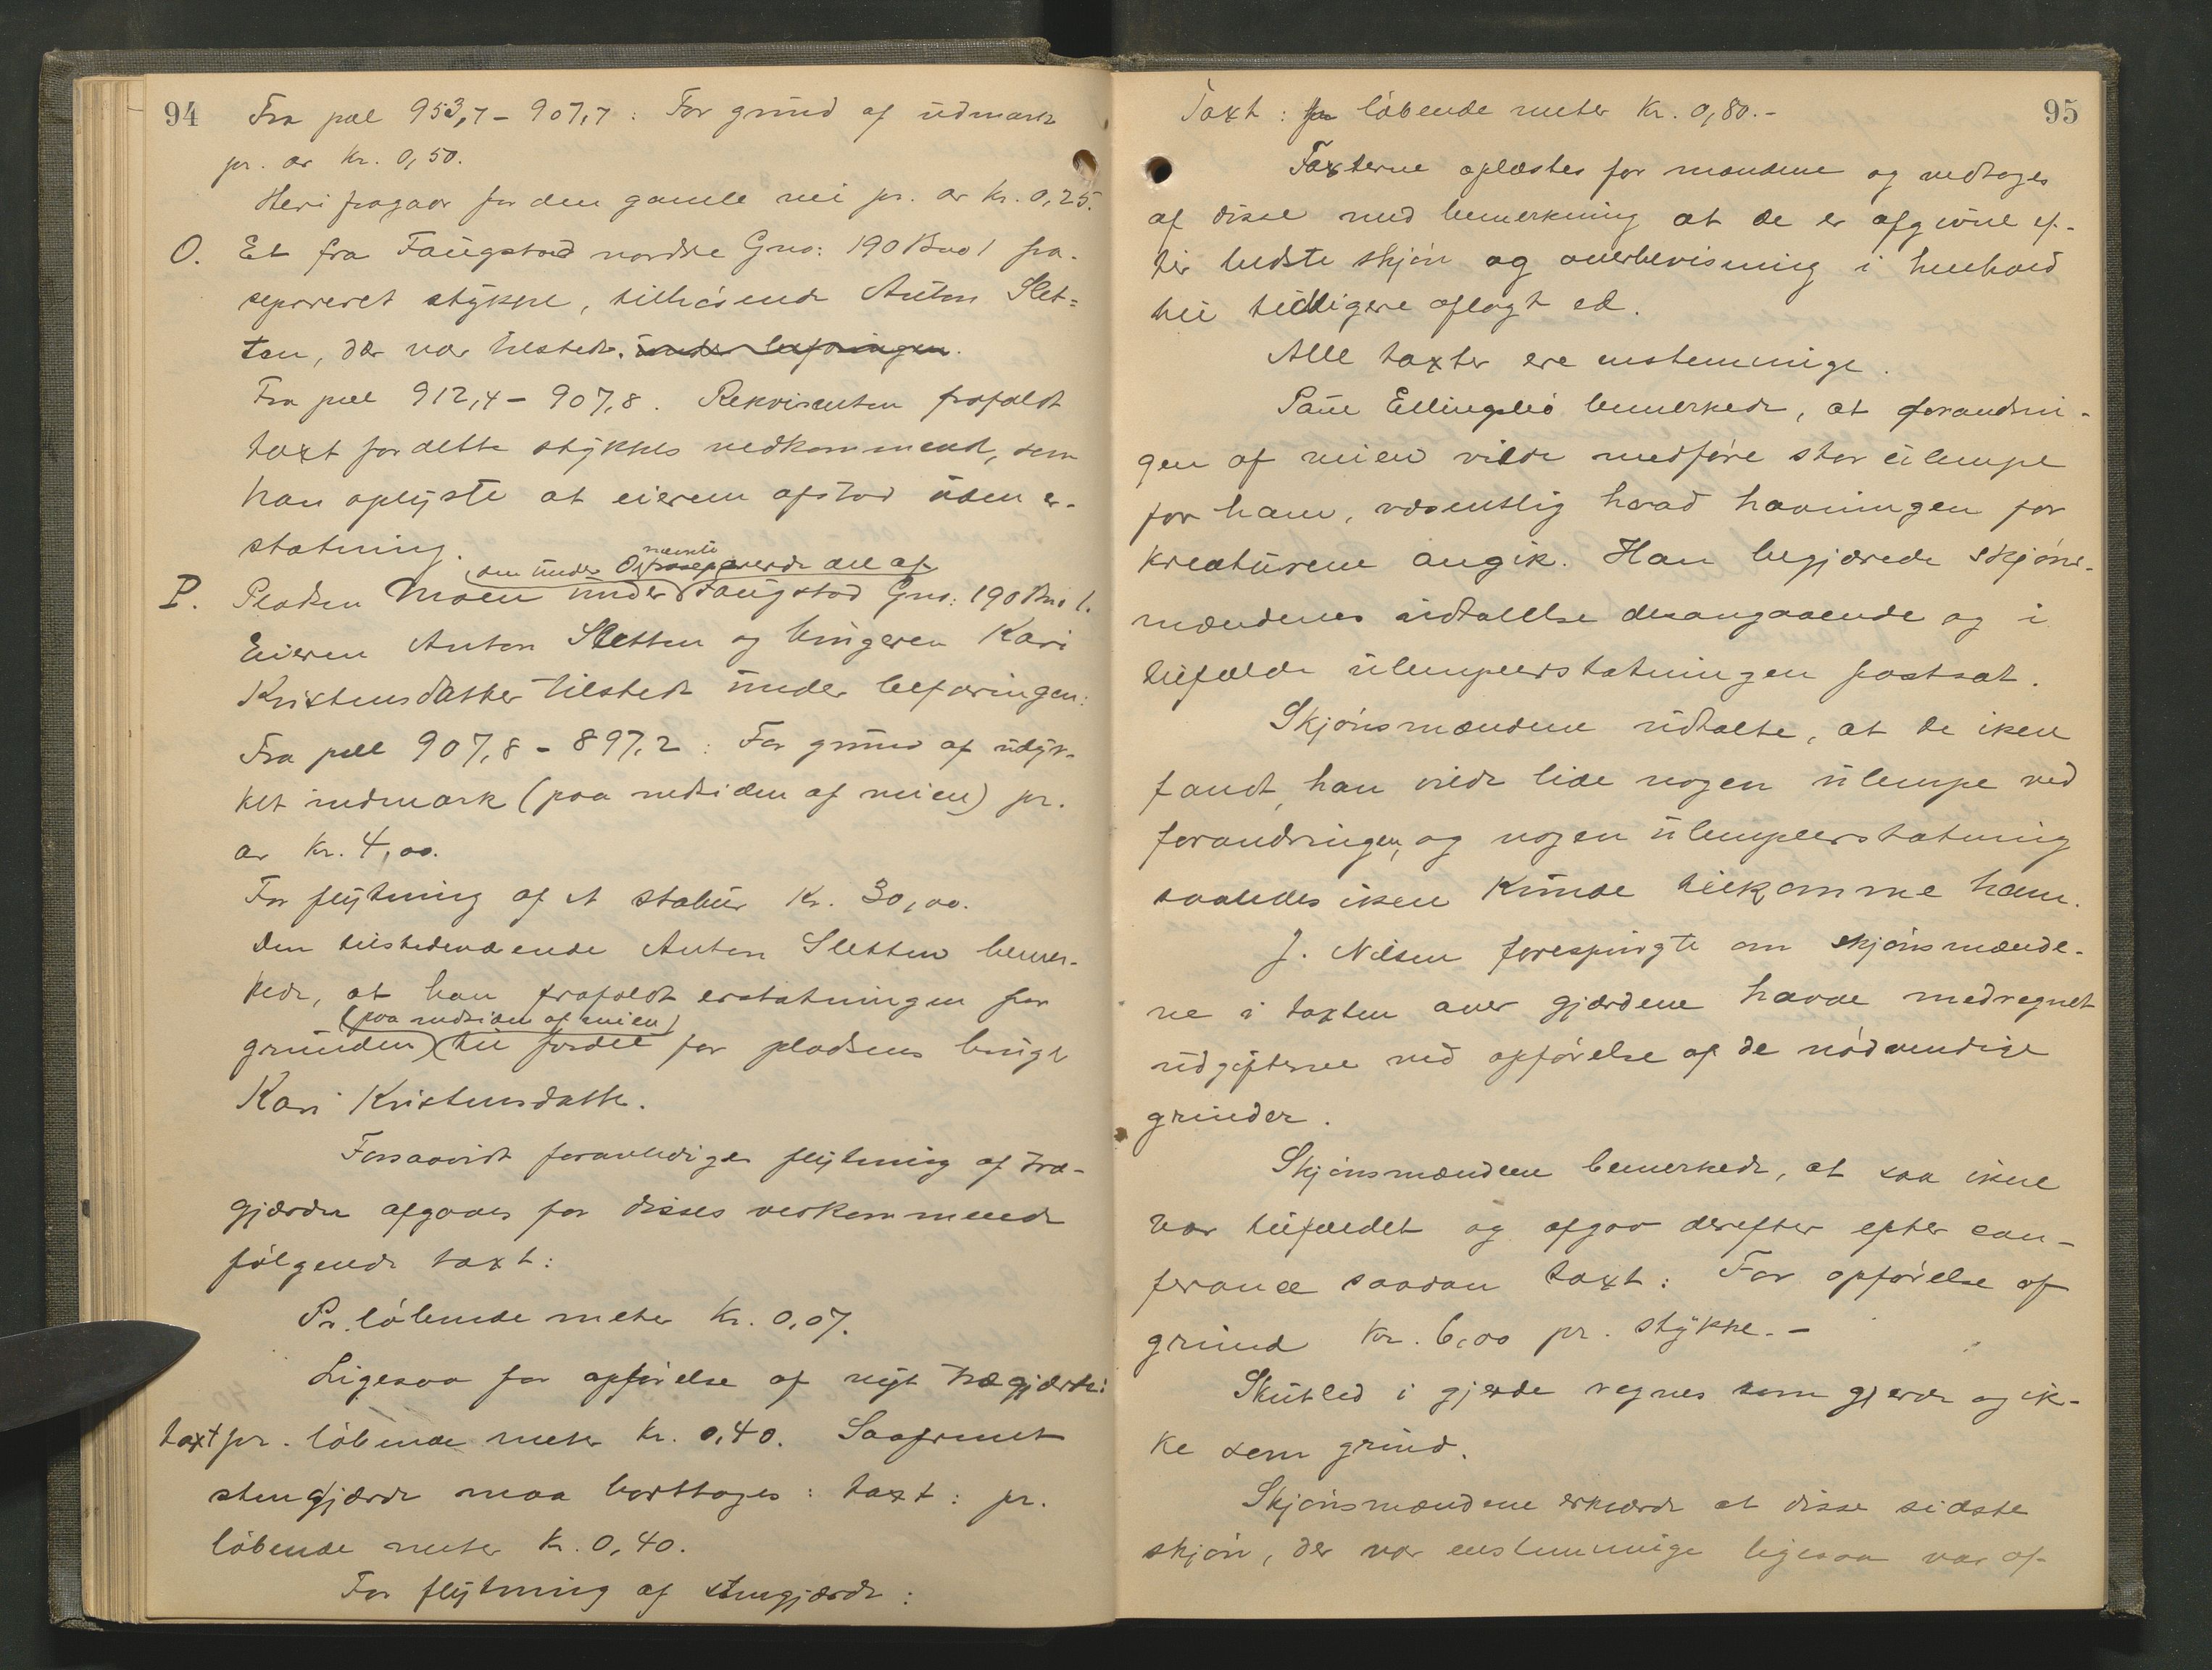 94
Fra pæl 953,7 - 907,7: For grund af udmark
pr. ar kr. 0,50.
Heri fragaar for den gamle vei pr. ar kr. 0,25.
O. Et fra Faugstad nordre Gno: 190 Bno 1 fra-
separeret stykke, tilhørende Anton Slet-
ten, der var tilstede. under befaringen.
Fra pæl 912,4 - 907,8. Rekvirenten frafaldt
taxt for dette stykkes vedkommende, som
han oplyste at eieren afstod uden er-
statning.
nævnte
den under O fraseparerede del af
P. Pladsen Moen under Faugstad Gno: 190 Bno 1.
Eieren Anton Sletten og brugeren Kari
Kristensdatter tilstede under befaringen:
Fra pæl 907,8 - 897,2: For grund af udyr-
ket indmark (paa nedsiden af veien) pr.
ar kr. 4,00.
For flytning af et stabur kr. 30,00.
Den tilstedeværende Anton Sletten bemær-
kede, at han frafaldt erstatningen for
(paa nedsiden af veien)
grunden til fordel for pladsens bruger
Kari Kristensdatter.
Forsaavidt foranlediges flytning af træ-
gjærder afgaves for disses vedkommende
følgende taxt:
Pr. løbende meter kr. 0,07.
Ligesaa for opførelse af nyt trægjærde:
taxt pr. løbende meter kr. 0,40. Saafremt
stengjærde maa borttages: taxt: pr.
løbende meter kr. 0,40.
For flytning af stengjærde:
95
Taxt: pr løbende meter kr. 0,80.-
Taxterne oplæstes for mændene og vedtoges
af disse med bemerkning at de er afgivne ef-
ter bedste skjøn og overbevisning i henhold
til tidligere aflagt ed.
Alle taxter ere enstemmige.
Paul Ellingsbø bemerkede, at forandrin-
gen af veien vilde medføre stor ulempe
for ham, væsentlig hvad havningen for
kreaturene angik. Han begjærede skjøns-
mændenes udtalelse desangaaende og i
tilfælde ulempeerstatningen fastsat.
Skjønsmændene udtalte, at de ikke
fandt, han vilde lide nogen ulempe ved
forandringen, og nogen ulempeerstatning
saaledes ikke kunde tilkomme ham.
J. Nilsen forespurgte om skjønsmænde-
ne i taxten over gjærdene havde medregnet
udgifterne ved opførelse af de nødvendige
grinder.
Skjønsmændene bemerkede, at saa ikke
var tilfældet og afgav derefter efter con-
ferance saadan taxt: For opførelse af
grind kr. 6,00 pr. stykke.-
Skutled i gjerde regnes som gjerde og ik-
ke som grind.
Skjønsmændene erklærede at disse sidste
skjøn, der var enstemmige ligesaa var af-